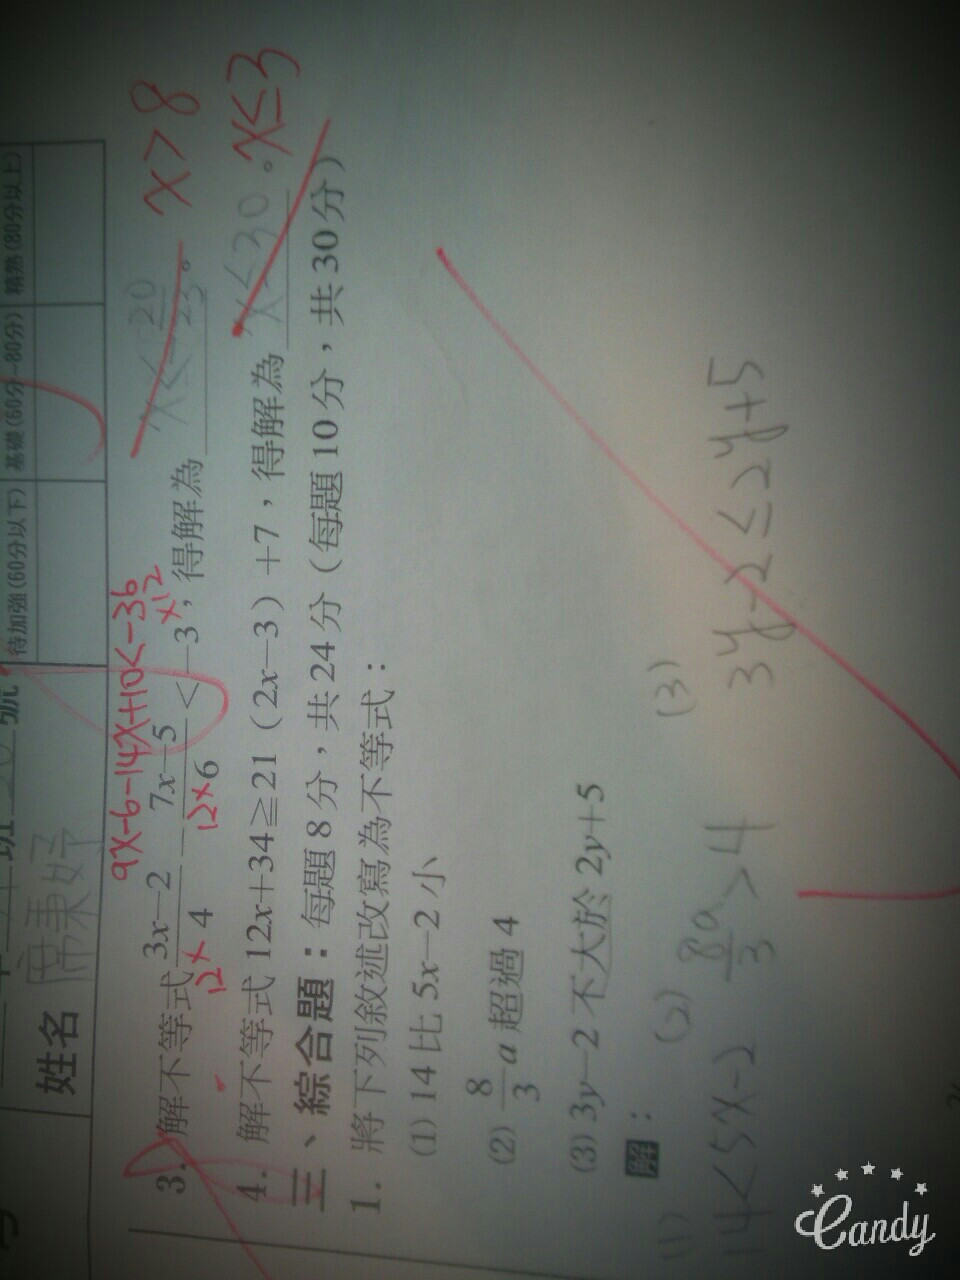 姓名 席秉妤 號
待加強(60分以下) 基礎(60分~80分) 精熟(80分以上)
9x-6-14x+10<-36
3. 解不等式 \frac{3x-2}{4} - \frac{7x-5}{6} < -3,得解為 x > 8
12× 12× ×12
4. 解不等式 12x+34≧21(2x-3)+7,得解為 x≤30。 x≤3
三、綜合題:每題8分,共24分(每題10分,共30分)
1. 將下列敘述改寫為不等式:
(1) 14比5x-2小
(2) \frac{8}{3}a 超過4
(3) 3y-2不大於2y+5
解:
(1) 14<5x-2
(2) \frac{8a}{3}>4
(3) 3y-2≤2y+5
Candy